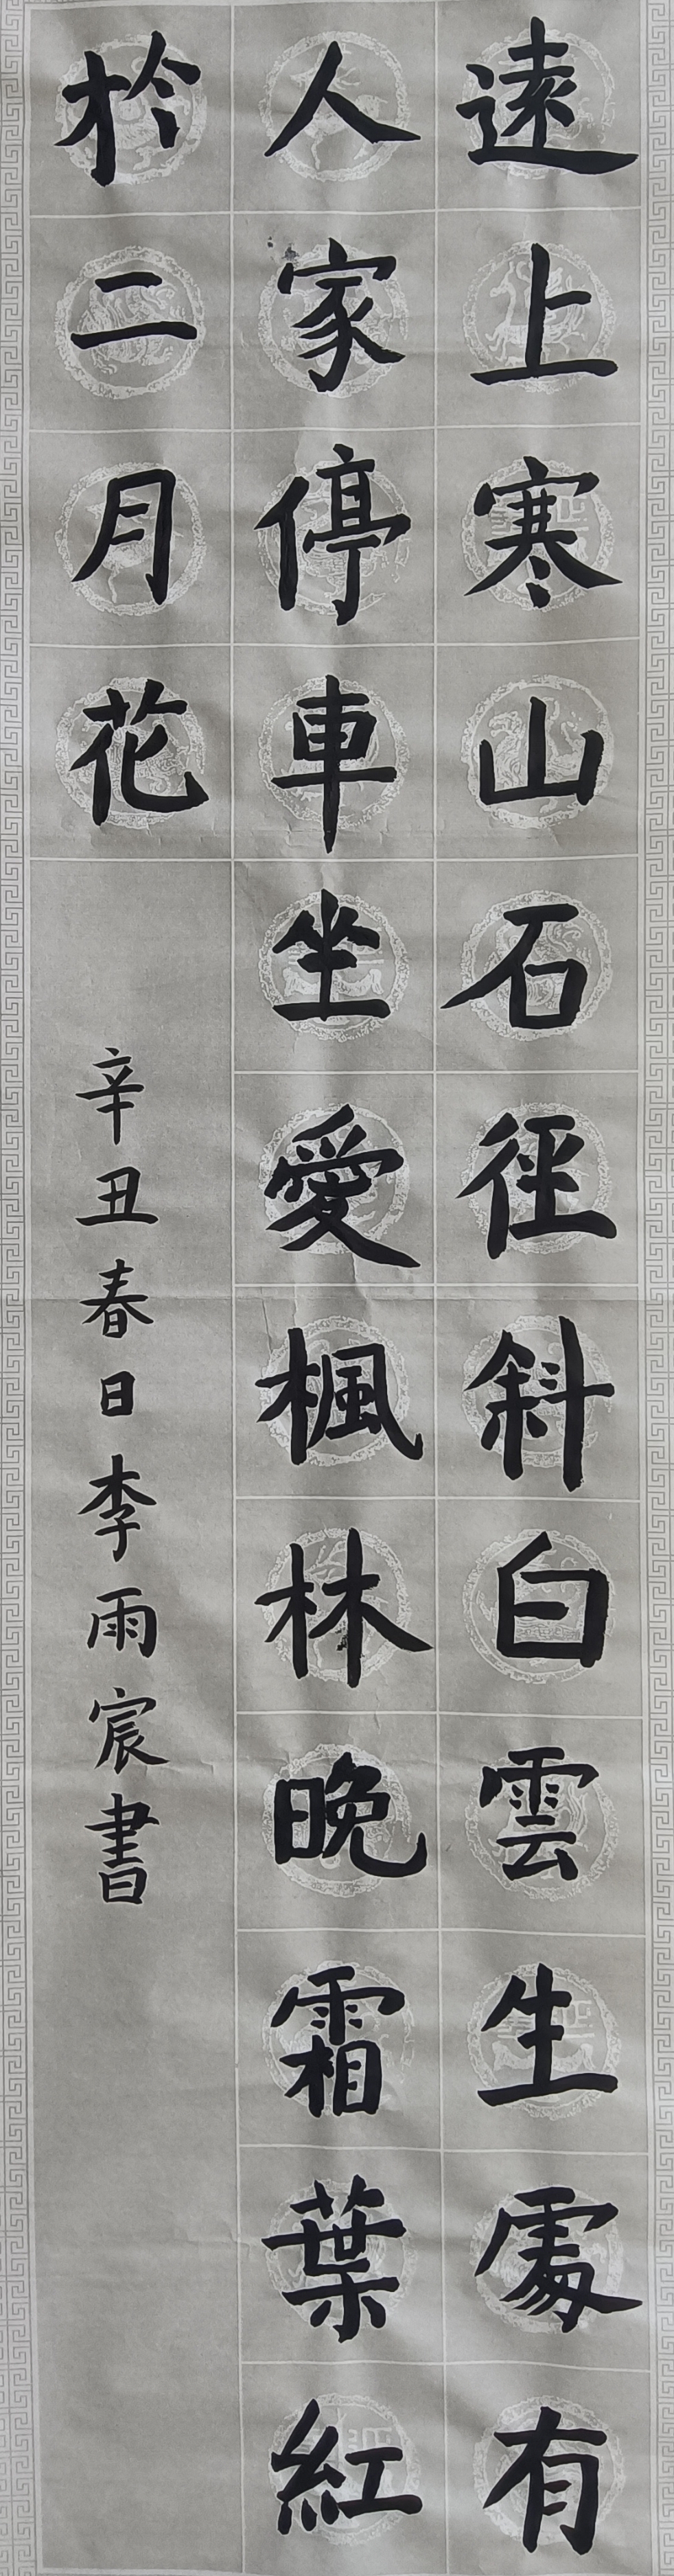 遠上寒山石徑斜白雲生處有
人家停車坐愛楓林晚霜葉紅
於二月花
辛丑春日李雨宸書